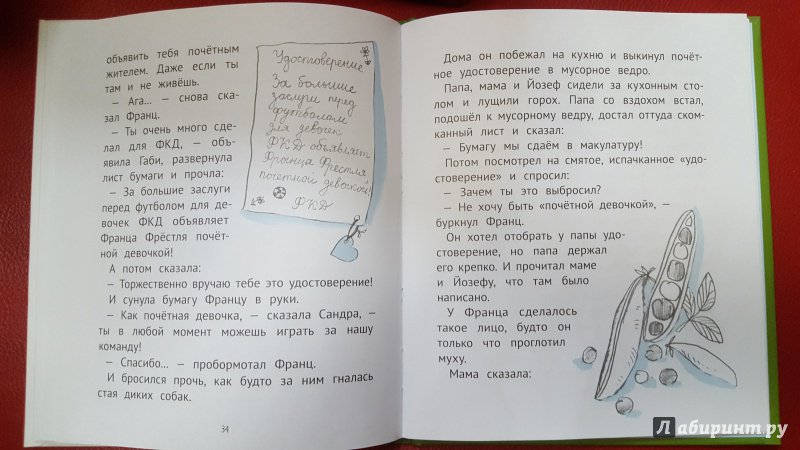 объявить тебя почётным
жителем. Даже если ты
там и не живёшь.
— Ага... — снова ска-
зал Франц.
— Ты очень много сде-
лал для ФКД, — объ-
явила Габи, развернула
лист бумаги и прочла:
— За большие заслуги
перед футболом для де-
вочек ФКД объявляет
Франца Фрёстля почёт-
ной девочкой!
А потом сказала:
— Торжественно вручаю тебе это удостоверение!
И сунула бумагу Францу в руки.
— Как почётная девочка, — сказала Сандра, —
ты в любой момент можешь играть за нашу
команду!
— Спасибо... — пробормотал Франц.
И бросился прочь, как будто за ним гналась
стая диких собак.
34
Удостоверение
За большие
заслуги перед
футболом
для девочек
ФКД объявляет
Франца Фрёстля
почетной девочкой!
ФКД
Дома он побежал на кухню и выкинул почёт-
ное удостоверение в мусорное ведро.
Папа, мама и Йозеф сидели за кухонным сто-
лом и лущили горох. Папа со вздохом встал,
подошёл к мусорному ведру, достал оттуда ском-
канный лист и сказал:
— Бумагу мы сдаём в макулатуру!
Потом посмотрел на смятое, испачканное «удо-
стоверение» и спросил:
— Зачем ты это выбросил?
— Не хочу быть «почётной девочкой», —
буркнул Франц.
Он хотел отобрать у папы удо-
стоверение, но папа держал
его крепко. И прочитал маме
и Йозефу, что там было
написано.
У Франца сделалось
такое лицо, будто он
только что проглотил
муху.
Мама сказала:
Лабиринт.ру